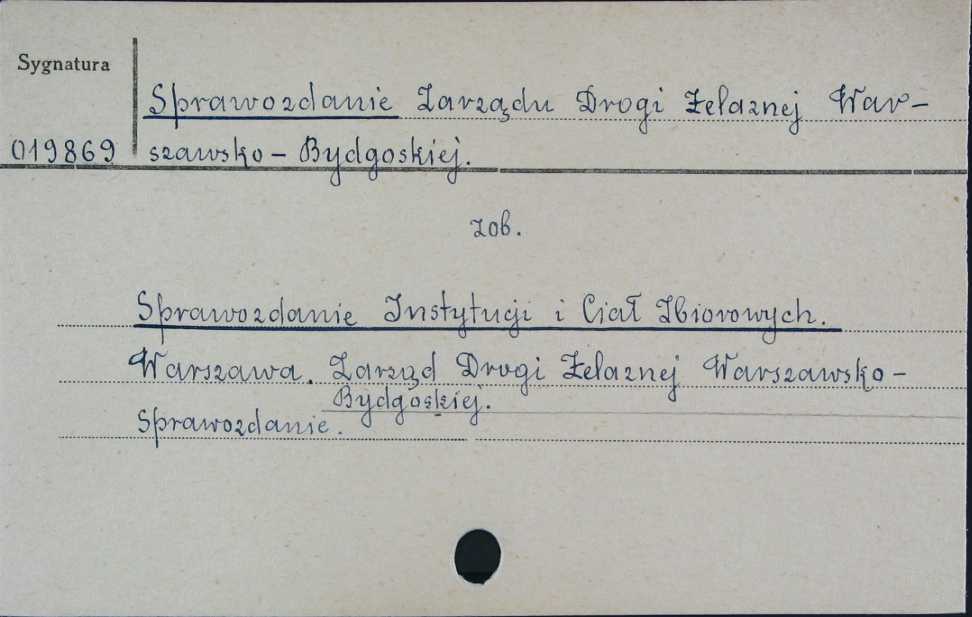 Sygnatura
Sprawozdanie Zarządu Drogi Żelaznej War-
019869 szawsko - Bydgoskiej.
zob.
Sprawozdanie Instytucji i Ciał Zbiorowych.
Warszawa. Zarząd Drogi Żelaznej Warszawsko -
Bydgoskiej.
Sprawozdanie.